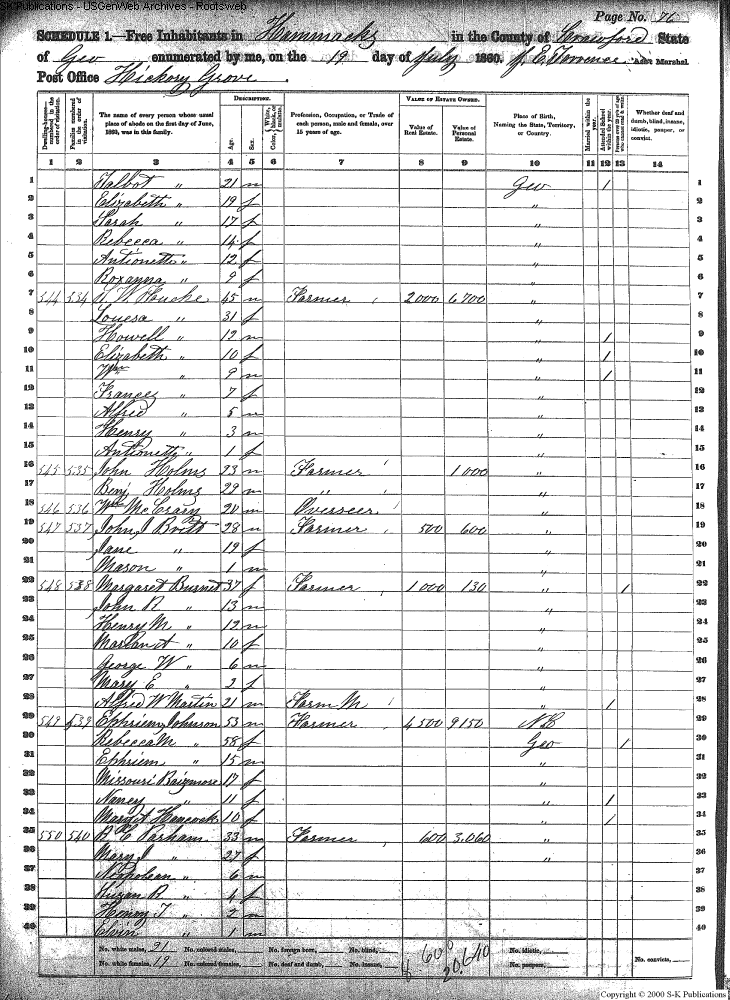 S-K Publications - USGenWeb Archives - Rootsweb
Page No. 76
SCHEDULE 1.—Free Inhabitants in Hammacks in the County of Crawford State
of Geo enumerated by me, on the 19 day of July 1860. Ass't Marshal.
Post Office Hickory Grove.
Dwelling-houses—numbered in the order of visitation.
Families numbered in the order of visitation.
The name of every person whose usual place of abode on the first day of June, 1860, was in this family.
DESCRIPTION.
Age.
Sex.
Color, White, black, or mulatto.
Profession, Occupation, or Trade of each person, male and female, over 15 years of age.
VALUE OF ESTATE OWNED.
Value of Real Estate.
Value of Personal Estate.
Place of Birth, Naming the State, Territory, or Country.
Married within the year.
Attended School within the year.
Persons over 20 years of age who cannot read & write.
Whether deaf and dumb, blind, insane, idiotic, pauper, or convict.
1 2 3 4 5 6 7 8 9 10 11 12 13 14
1 Talbot " 21 m Geo / 1
2 Elizabeth " 19 f " 2
3 Sarah " 17 f " 3
4 Rebecca " 14 f " 4
5 Antionette " 12 f " 5
6 Roxanna " 9 f " 6
7 544 534 W. 45 m Farmer 2000 6700 " 7
8 Louesa " 31 f " 8
9 Howell " 12 m " / 9
10 Elizabeth " 10 f " / 10
11 Wm " 9 m " / 11
12 Frances " 7 f " 12
13 Alfred " 5 m " 13
14 Henry " 3 m " 14
15 Antionette " 1 f " 15
16 545 535 John Holms 23 m Farmer 1000 " 16
17 Benj Holms 29 m " " " 17
18 546 536 Wm McCrary 20 m Overseer " 18
19 547 537 John J Britt 28 m Farmer 500 600 " 19
20 Jane " 19 f " 20
21 Mason " 1 m " 21
22 548 538 Margaret Burnet 37 f Farmer 1000 130 " / 22
23 John R " 13 m " 23
24 Henry M " 12 m " 24
25 " 10 f " 25
26 George W " 6 m " 26
27 Mary E " 2 f " 27
28 Alfred W Martin 21 m Farm M " / 28
29 549 539 Ephriem Johnson 53 m Farmer 4500 9150 29
30 Rebecca M " 58 f Geo / 30
31 Ephriem " 15 m " 31
32 Missouri Baizmore 17 f " 32
33 Nancy " 11 f " / 33
34 Margt Hancock 10 f " / 34
35 550 540 B C Parham 33 m Farmer 600 3,060 " 35
36 Mary J " 27 f " 36
37 Nepholean " 6 m 37
38 R " 4 f 38
39 Henry T " 2 m 39
40 Elvin " 1 m 40
No. white males, 21 No. colored males, No. foreign born, No. blind, No. idiotic,
No. white females, 19 No. colored females, No. deaf and dumb, No. insane, No. paupers, No. convicts,
20,640
Copyright © 2000 S-K Publications